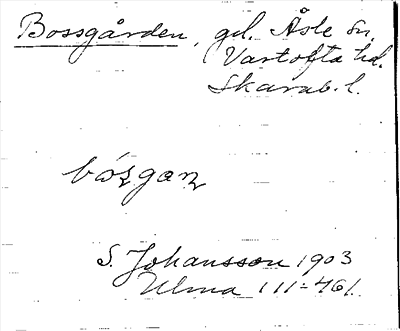 Bossgården, gd. Åsle sn.
Vartofta hd.
Skarab. l.
bóʒgaɳ
S. Johansson 1903
Ulma 111:461.